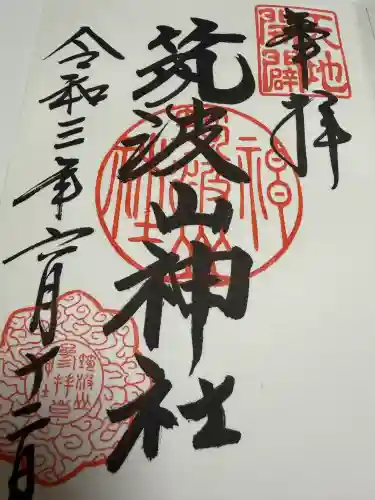 奉拝
天地開闢
筑波山神社
令和三年六月十二日